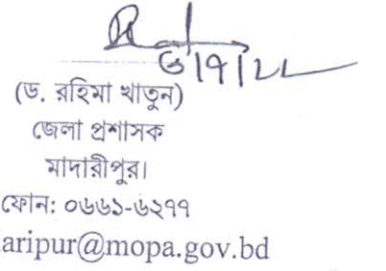 ৬/৭/২২
(ড. রহিমা খাতুন)
জেলা প্রশাসক
মাদারীপুর।
ফোন: ০৬৬১-৬২৭৭
aripur@mopa.gov.bd